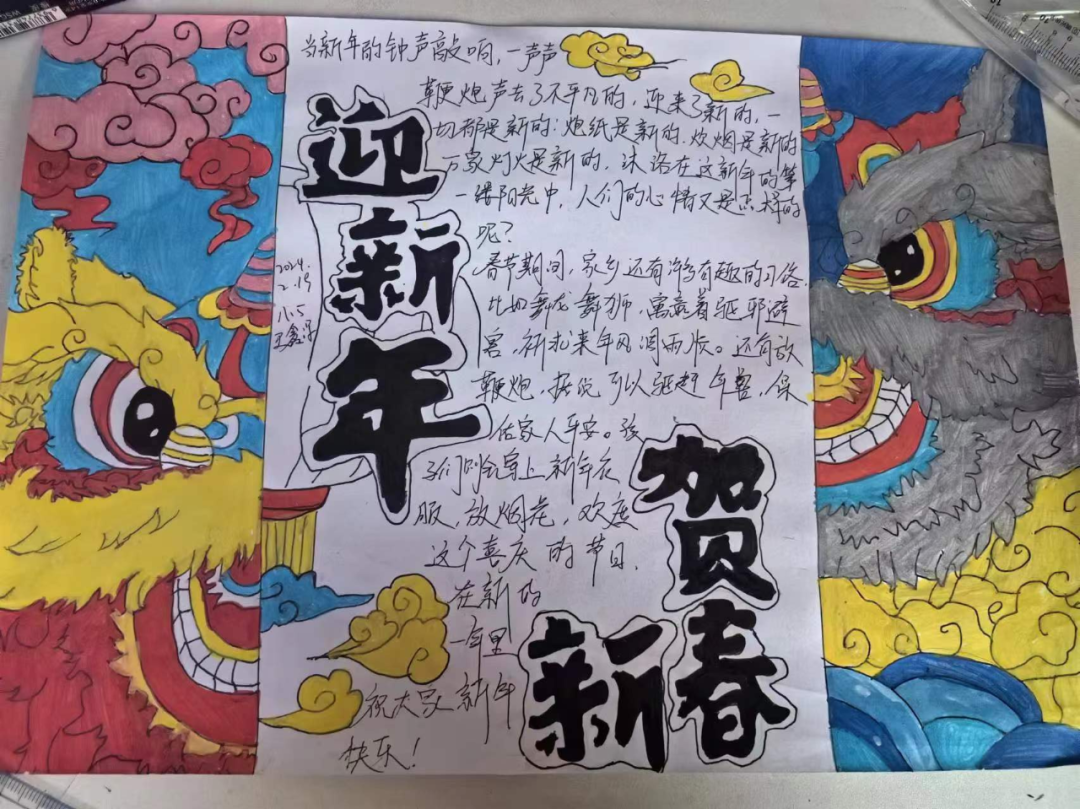 当新年的钟声敲响，一声声
鞭炮声去了不平凡的，迎来了新的，一
切都是新的：炮纸是新的，炊烟是新的
万家灯火是新的，沐浴在这新年的第
一缕阳光中，人们的心情又是怎样的
呢？
春节期间，家乡还有许多有趣的习俗，
比如舞龙舞狮，寓意着驱邪避
害，祈求来年风调雨顺。还有放
鞭炮，据说可以驱赶年兽，保
佑家人平安。孩
子们则会穿上新年衣
服，放烟花，欢度
这个喜庆的节日，
在新的
一年里
祝大家新年
快乐！
迎新年
2024.
2.19
八.5
王鑫
贺新春